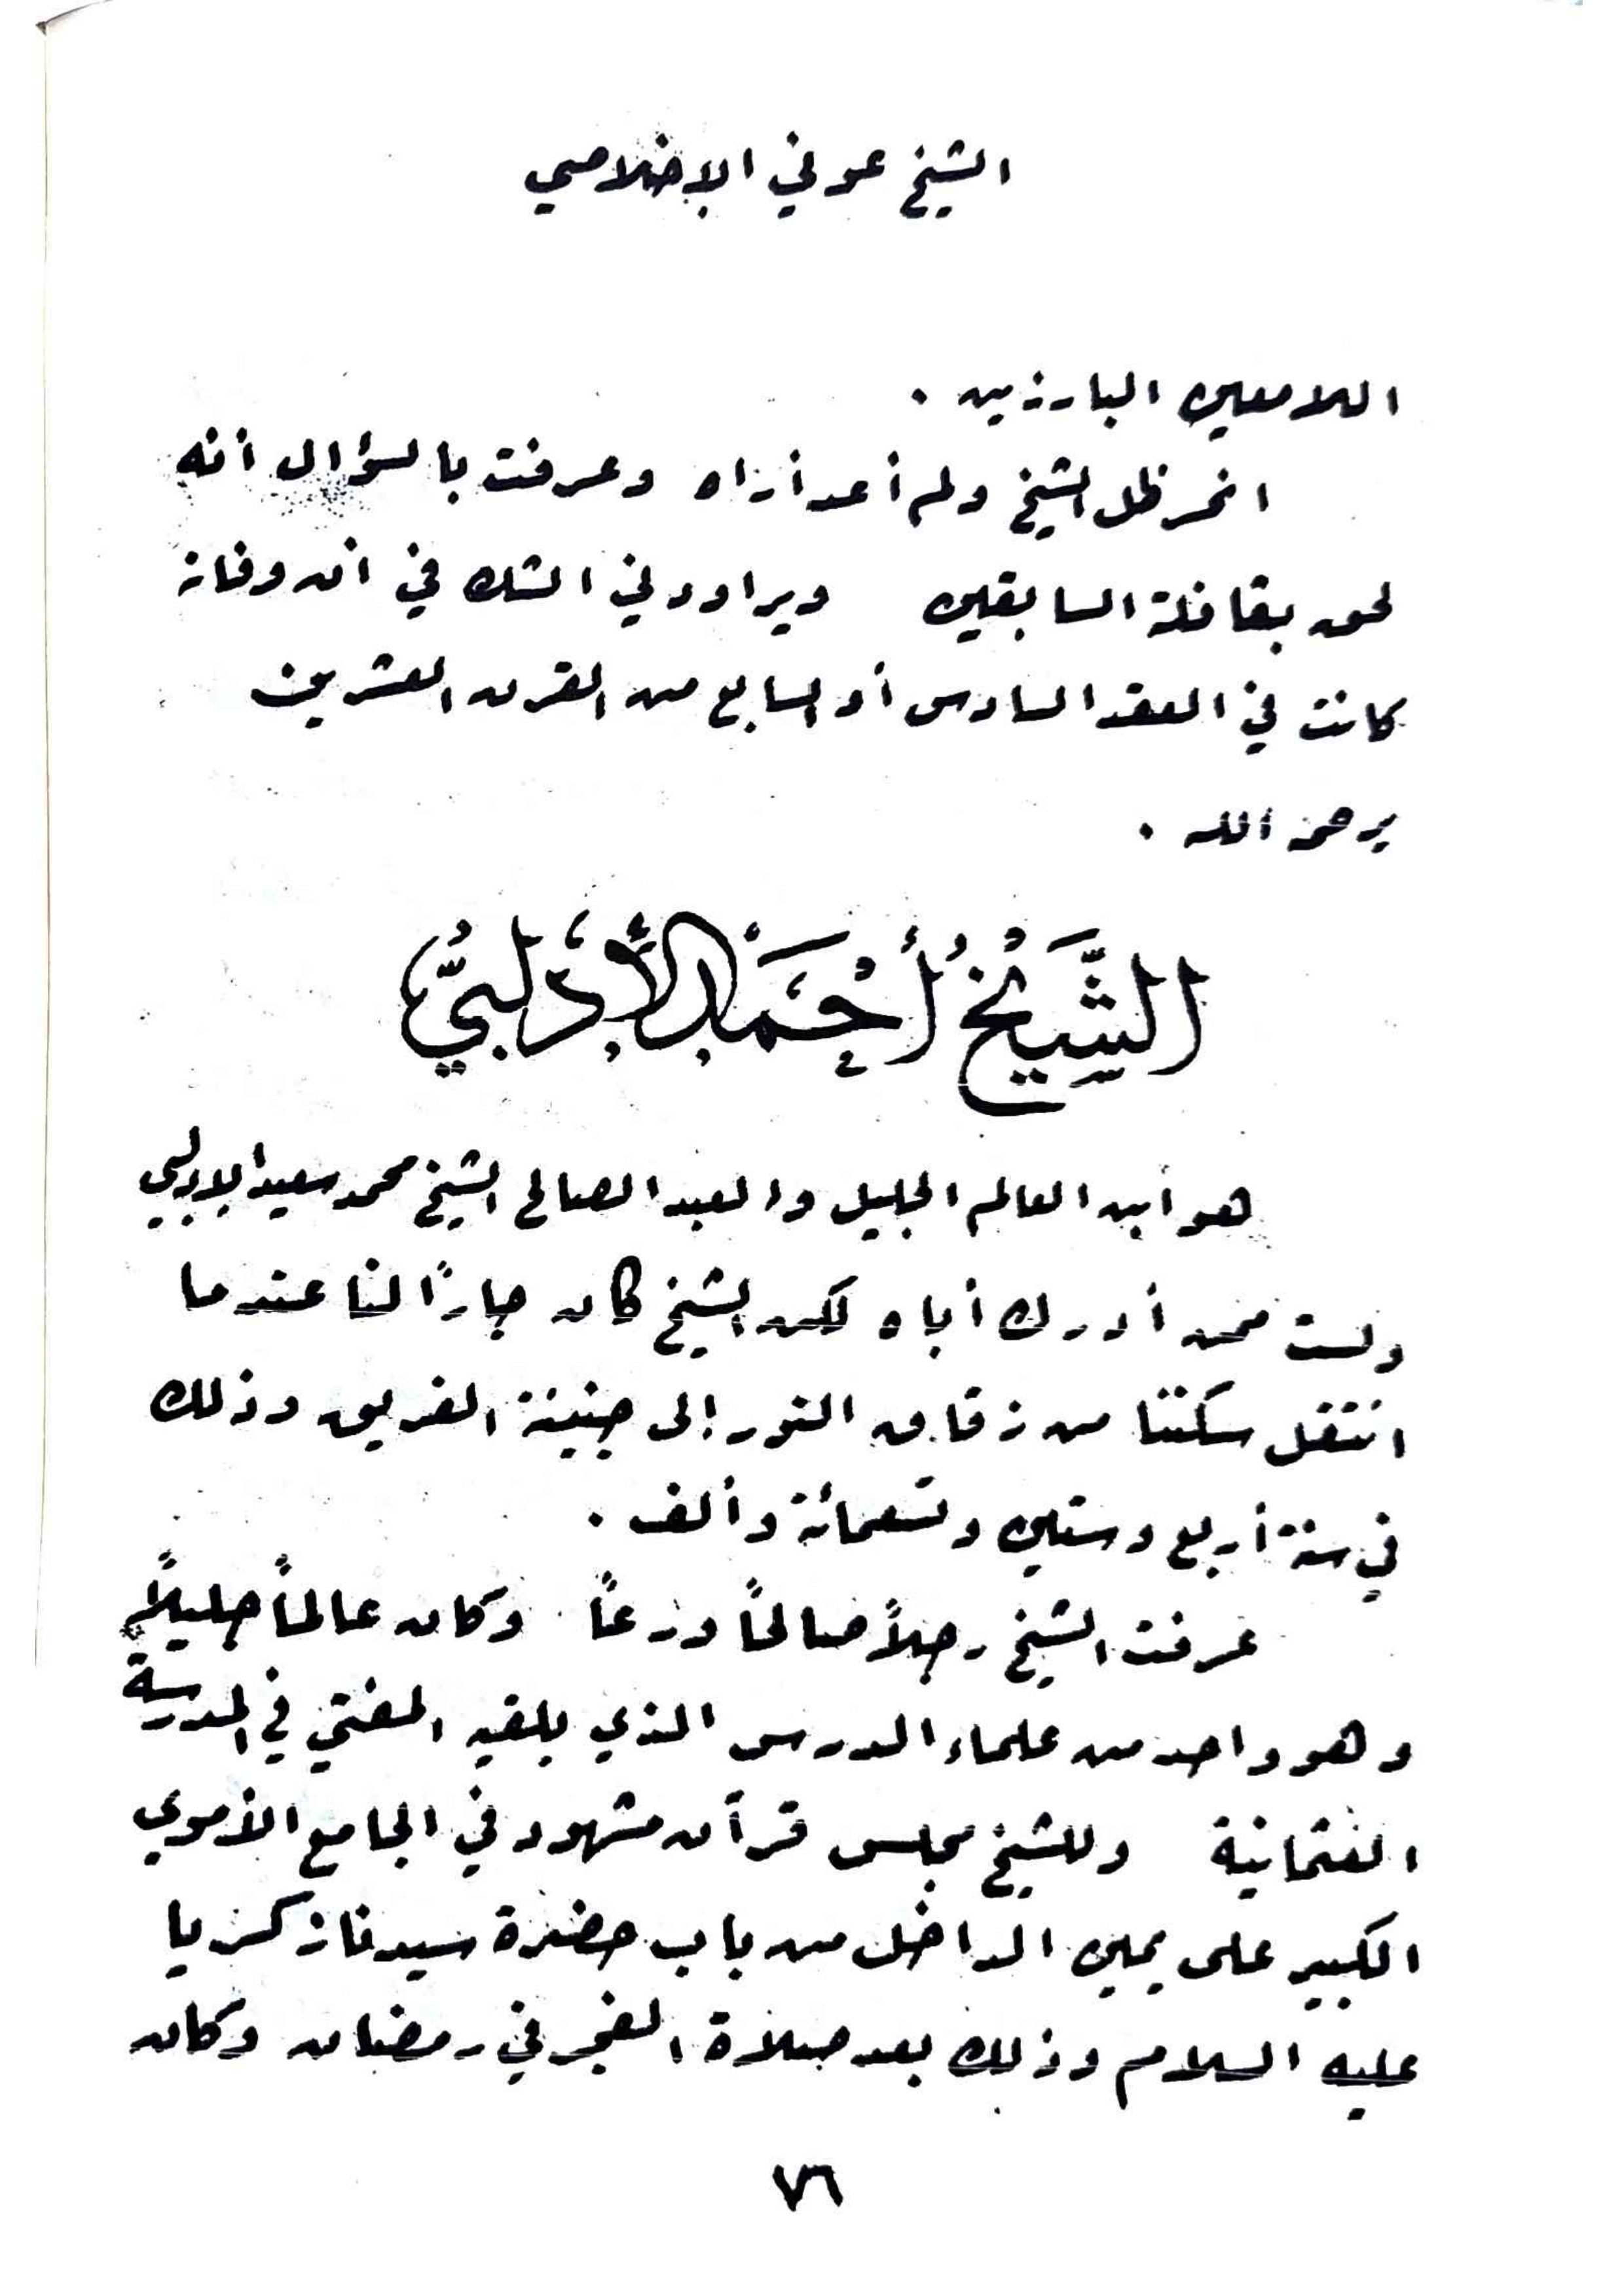 الشيخ عوني الإخلاصي
اللامعين البارزين .
انحسر ظل الشيخ ولم أعد أراه وعرفت بالسؤال أنه
لحق بقافلة السابقين ويراودني الشك في أن وفاته
كانت في العقد السادس أو السابع من القرن العشرين
يرحمه الله .
الشَّيْخُ أَحْمَدُ الأَدْلِبِيُّ
هو ابن العالم الجليل والعبد الصالح الشيخ محمد سعيد الإدلبي
ولست ممن أدرك أباه لكن الشيخ كان جاراً لنا عندما
انتقل سكننا من زقاق النور إلى جنينة الفريق وذلك
في سنة أربع وستين وتسعمائة وألف .
عرفت الشيخ رجلاً صالحاً ورعاً وكان عالماً جليلاً
وهو واحد من علماء الدرس الذي يلقيه المفتي في المدرسة
العثمانية وللشيخ مجلس قرآن مشهود في الجامع الأموي
الكبير على يمين الداخل من باب حضرة سيدنا زكريا
عليه السلام وذلك بعد صلاة الفجر في رمضان وكان
٧٦